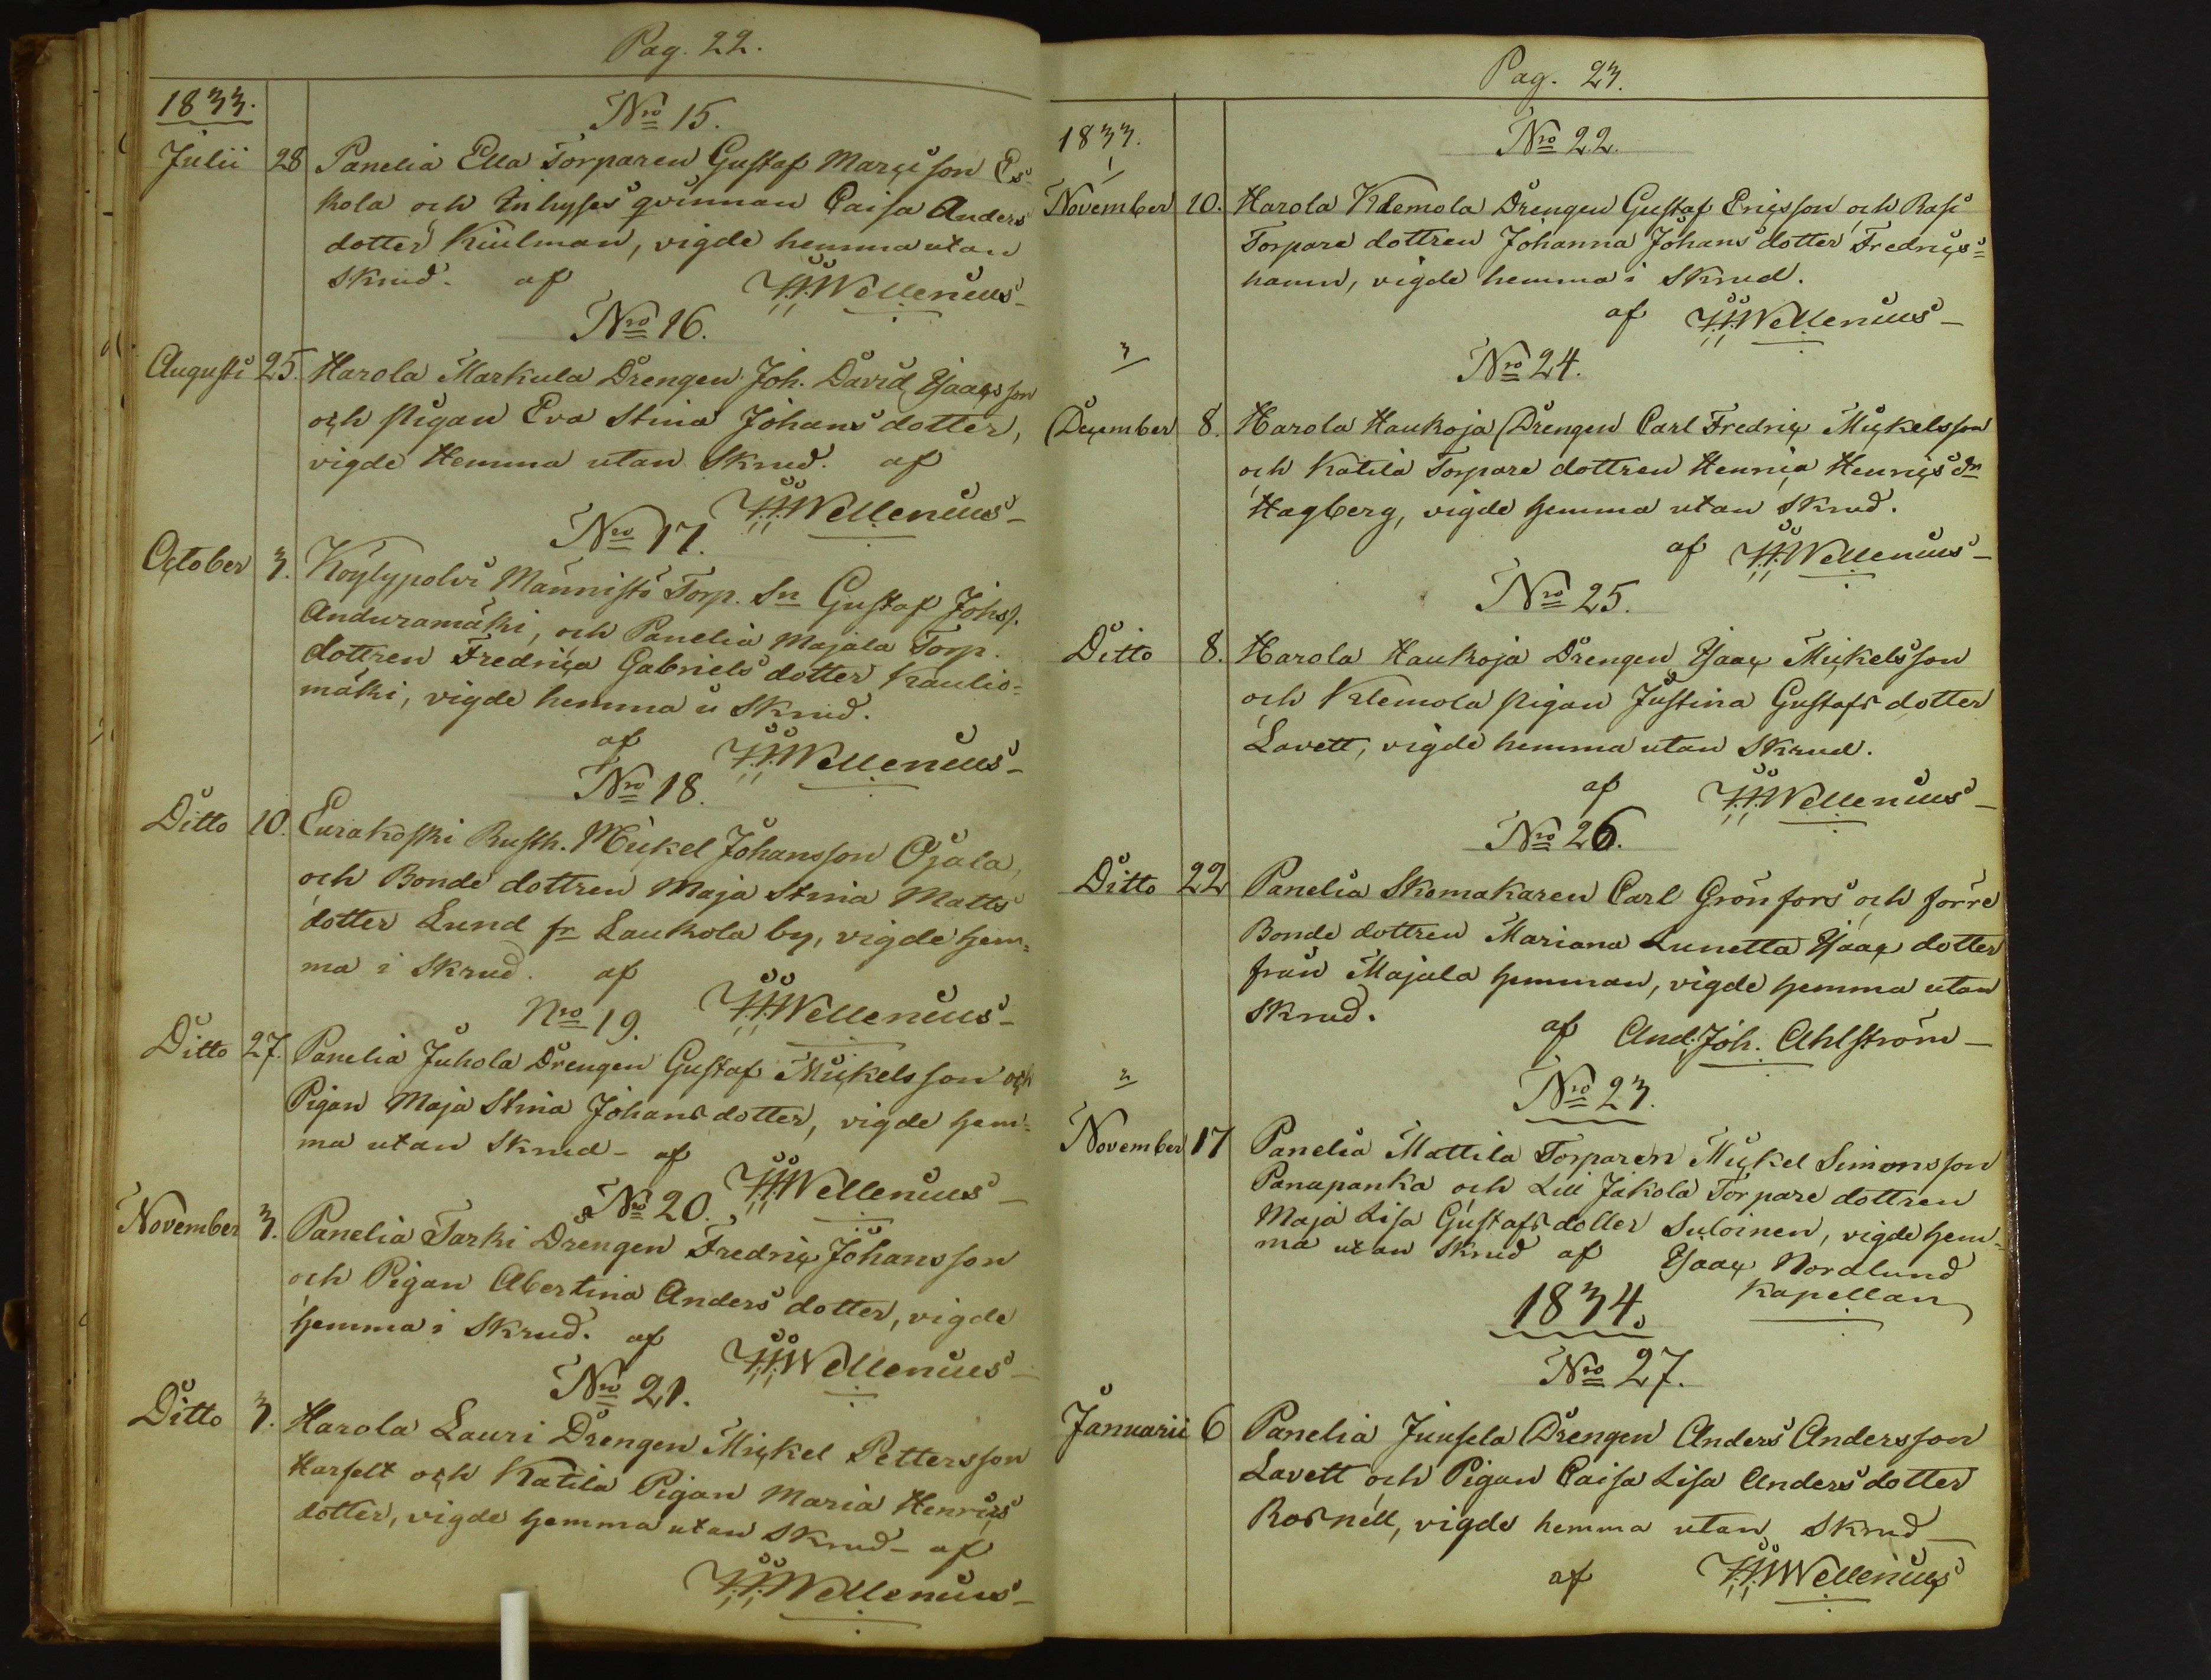 Pag. 22.
1833.
Nro 15.
Julii 28 Panelia Ella Torparen Gustaf Marcisson Es-
kola och Inhyses qvinnan Caisa Anders
dotter Kiulman, vigde hemma utan
Skrud. af Wellenius
Nro 16.
Augusti 25. Harola Markula Drengen Joh. David Isaacsson
och pigan Eva Stina Johans dotter,
vigde Hemma utan Skrud. af
Wellenius
Nro 17.
October 3. Köylypolvi Männistö Torp. Sn Gustaf Johss.
Anduramäki, och Panelia Majala Torp.
dottren Fredrica Gabriels dotter Kaulis=
mäki, vigde hemma i Skrud.
af Wellenius
Nro 18.
Ditto 10. Eurakoski Rusth. Mickel Johansson Ojala,
och Bonde dottren Maja Stina Matts
dotter Lund fr Laukola by, vigde hem=
ma i Skrud. af
Wellenius
Nro 19.
Ditto 27. Panelia Juhola Drengen Gustaf Mickelsson och
Pigan Maja Stina Johans dotter, vigde hem=
ma utan Skrud - af
Wellenius
Nro 20.
November 3. Panelia Tarki Drengen Fredric Johansson
och Pigan Abertina Anders dotter, vigde
hemma i Skrud. af
Wellenius
Nro 21.
Ditto 3. Harola Lauri Drengen Mickel Pettersson
Harfelt och Katila Pigan Maria Henrics
dotter, vigde hemma utan Skrud - af
Wellenius
Pag. 23.
1833.
Nro 22.
1
November 10. Harola Klemola Drengen Gustaf Ericsson och Rasi
Torpare dottren Johanna Johans dotter Fredrics=
hamn, vigde hemma i Skrud.
af Wellenius
3
Nro 24.
December 8. Harola Haukoja Drengen Carl Fredric Mickelsson
och Katila Torpare dottren Henrica Henrics dr
Hagberg, vigde hemma utan Skrud.
af Wellenius
Nro 25.
Ditto 8. Harola Haukoja Drengen Isaac Mickelsson
och Klemola pigan Justina Gustafs dotter
Lavett, vigde hemma utan Skrud.
af Wellenius
Nro 26.
Ditto 22 Panelia Skomakaren Carl Grönfors och förre
Bonde dottren Mariana Lunetta Isaac dotter
från Majala hemman, vigde hemma utan
Skrud.
af And. Joh. Ahlström
2
Nro 23.
November 17 Panelia Mattila Torparen Mickel Simonsson
Panapanka och Lill Jakola Torpare dottren
Maja Lisa Gustafs dotter Suloinen, vigde hem=
ma utan Skrud af Isaac Nordlund
Kapellan
1834.
Nro 27.
Januarii 6 Panelia Juusela Drengen Anders Andersson
Lavett och Pigan Caisa Lisa Anders dotter
Rosnell, vigde hemma utan Skrud
af Wellenius